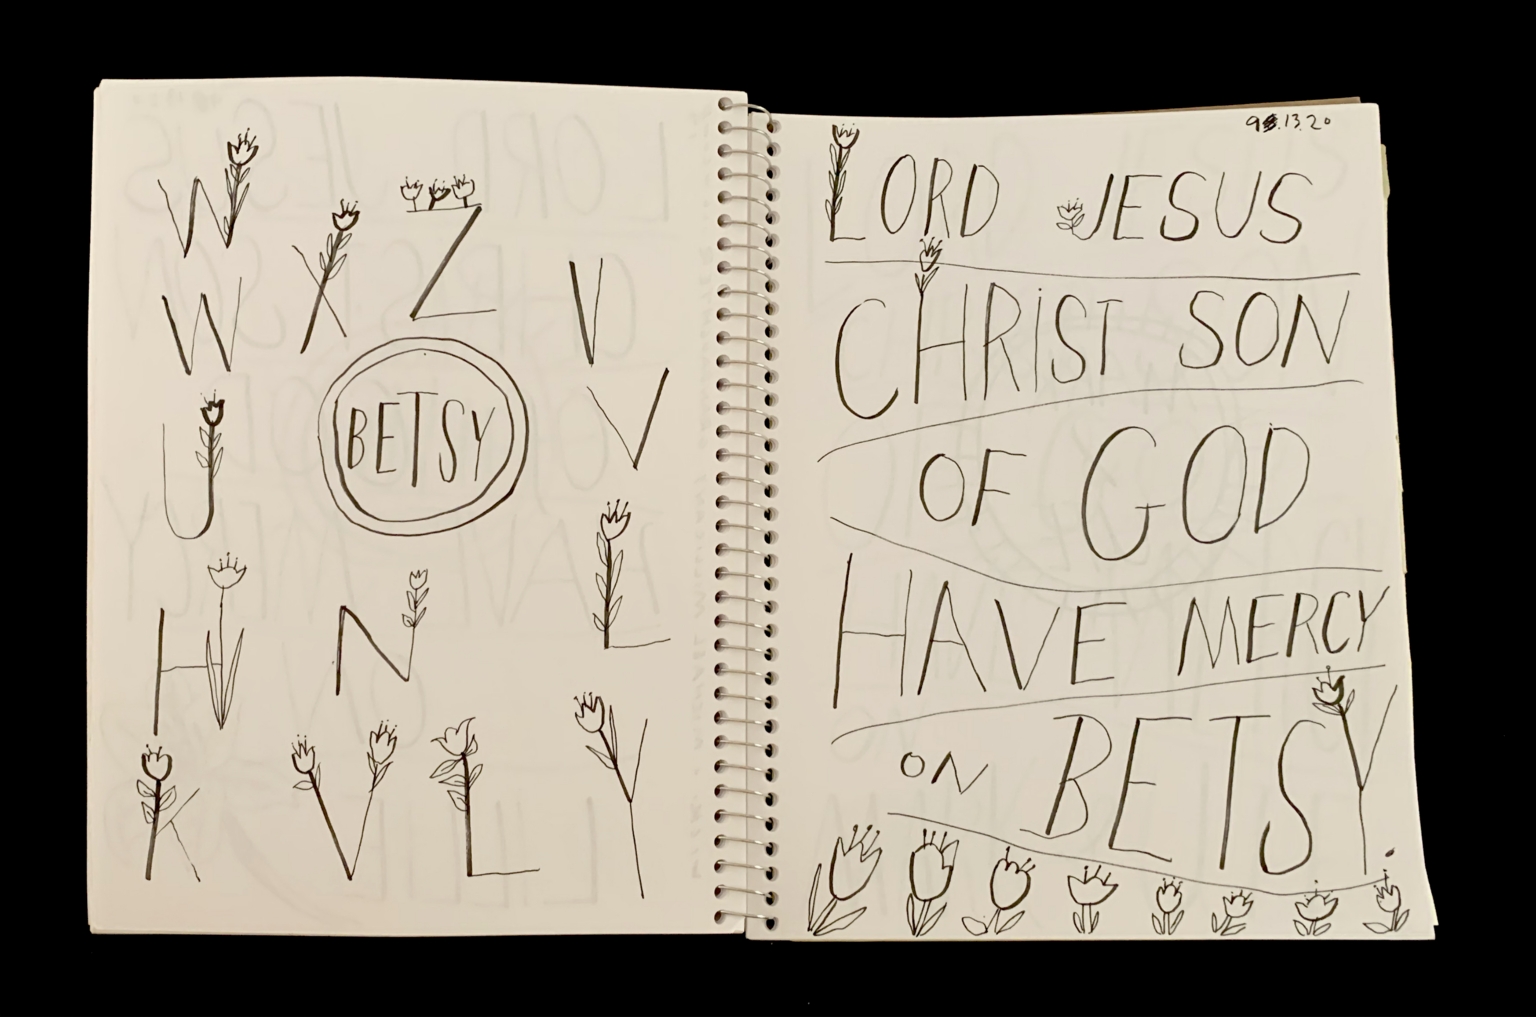 W
X
Z
W
V
BETSY
V
U
L
H
N
K
V
L
Y
9.13.20
LORD JESUS
CHRIST SON
OF GOD
HAVE MERCY
ON BETSY